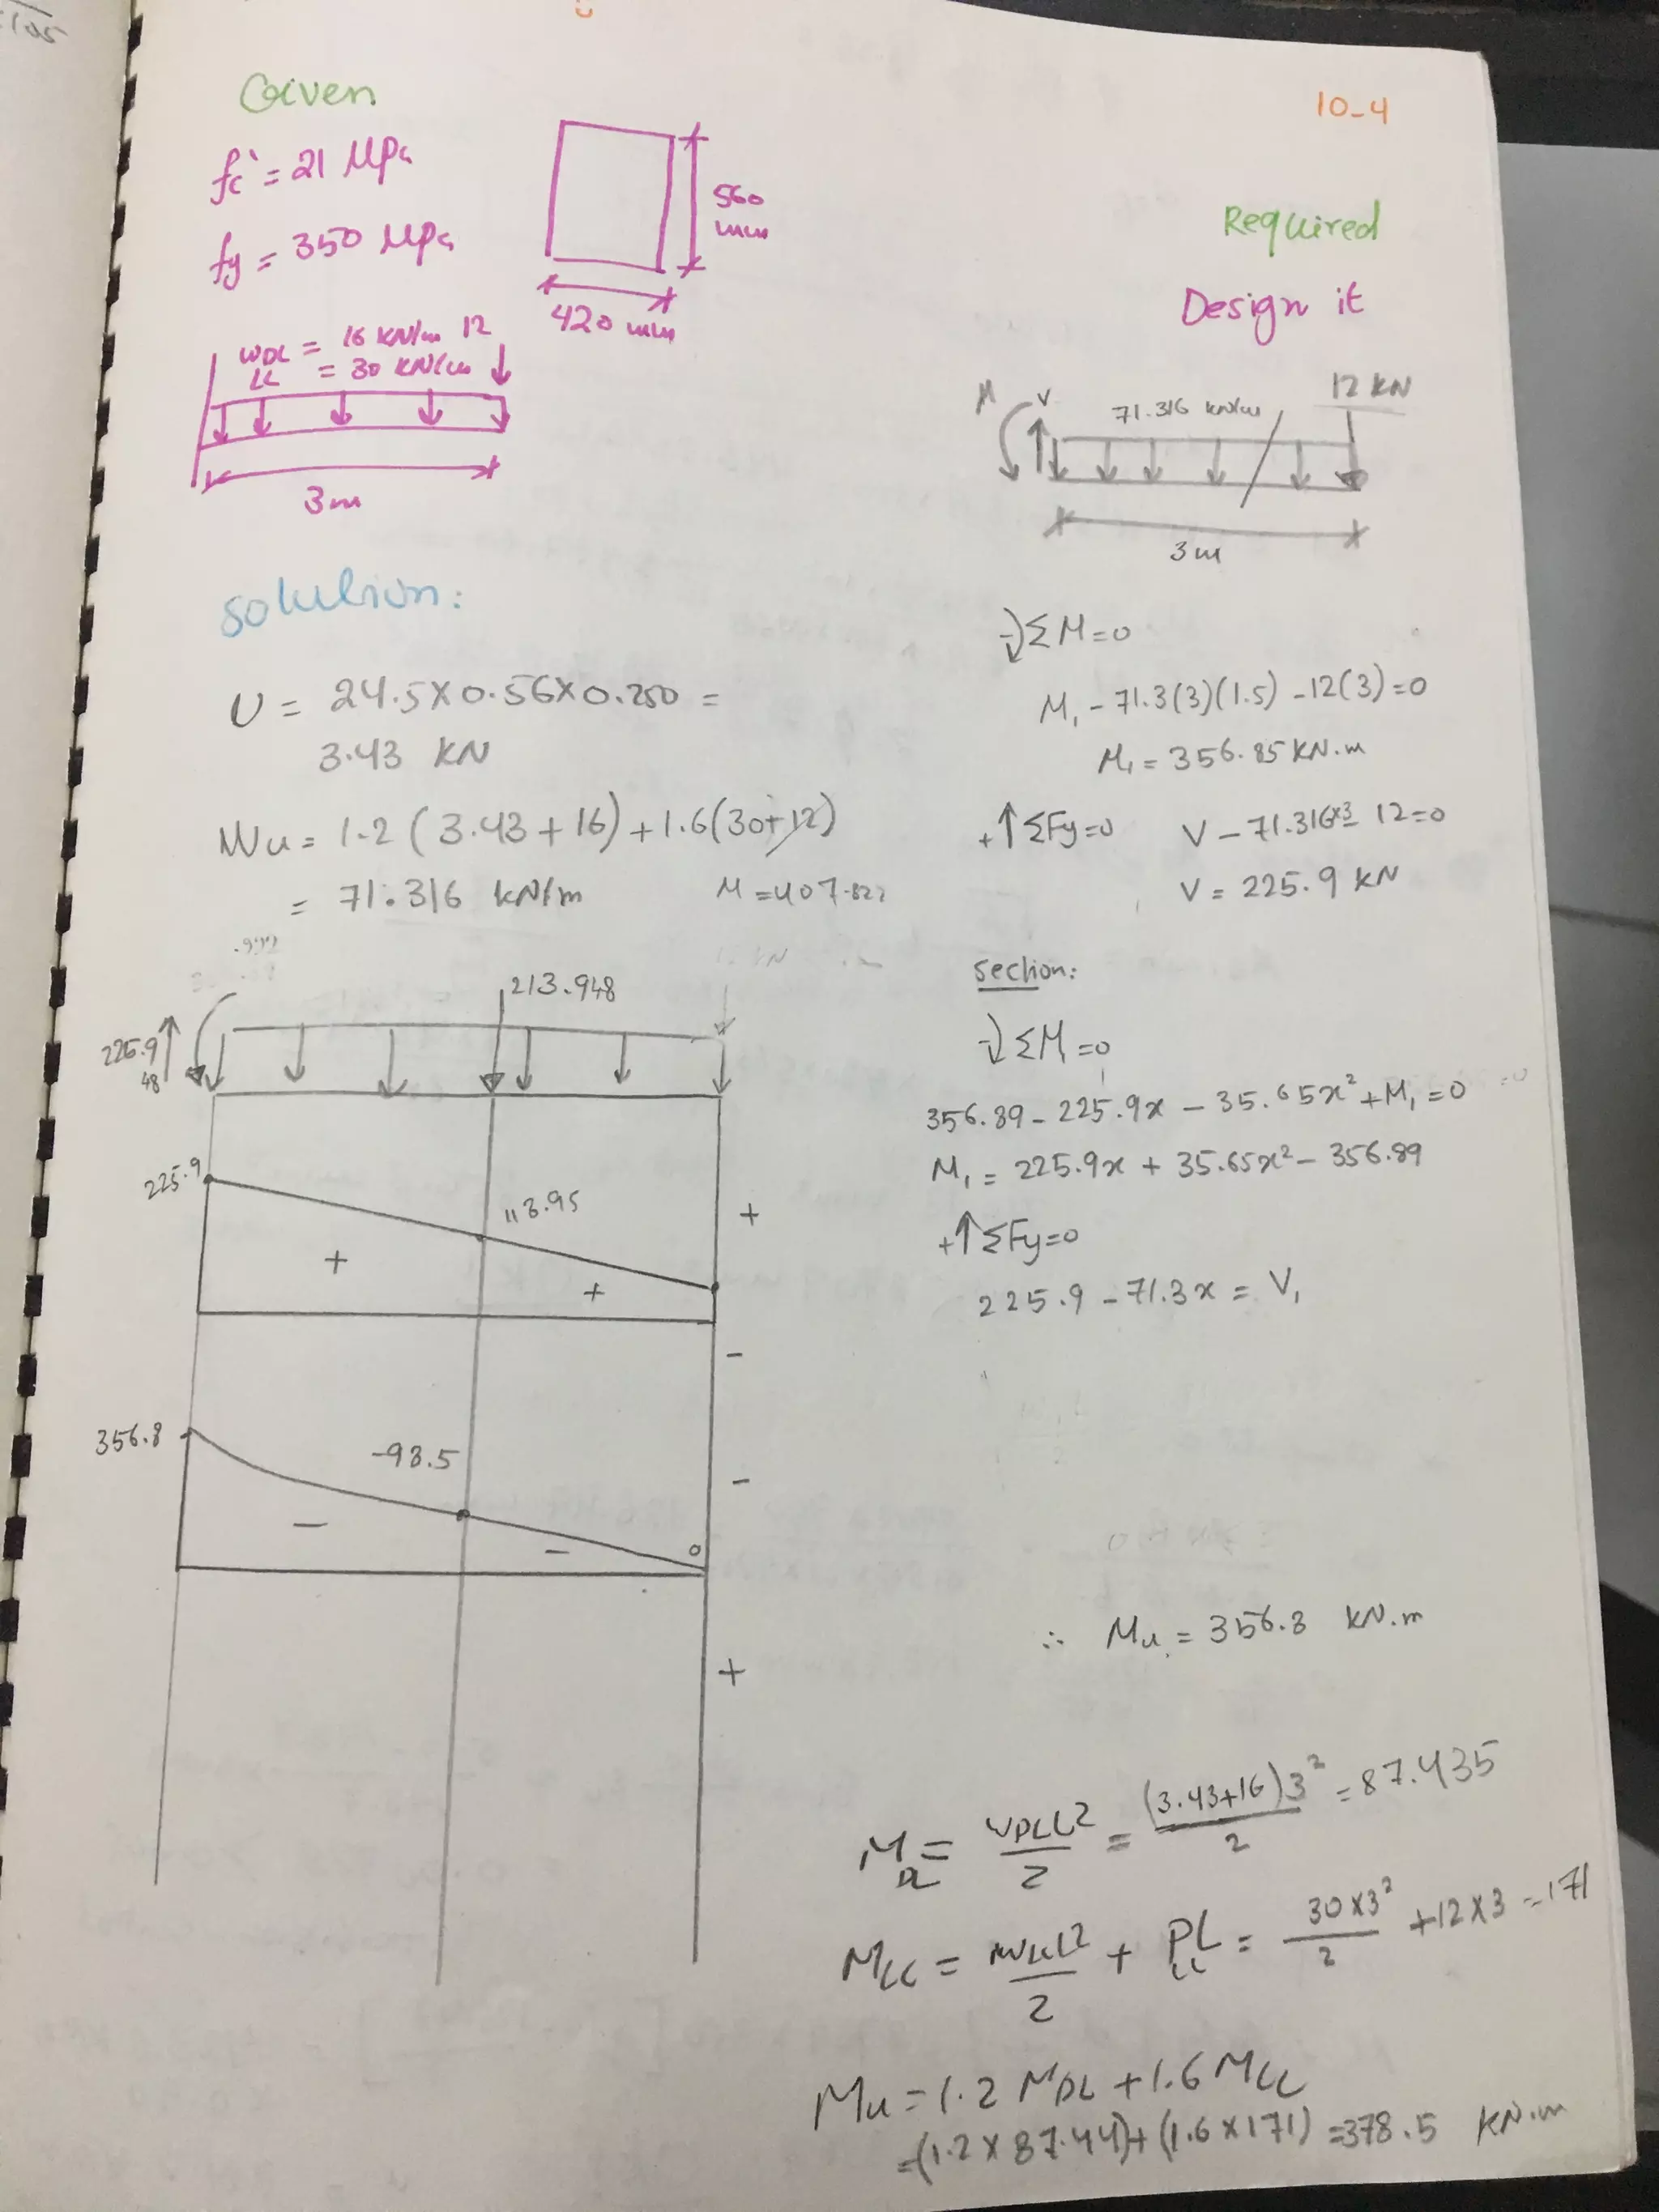 10-4
Given
fc' = 21 MPa
fy = 350 MPa
560
mm
420 mm
WDL = 16 kN/m 12
LL = 30 kN/m
3m
Required
Design it
M V 71.316 kN/m 12 KN
3m
Solution:
U = 24.5×0.56×0.250 =
3.43 KN
Wu = 1.2 (3.43+16)+1.6(30+12)
= 71.316 kN/m
M = 407.822
ΣM=0
M₁ - 71.3(3)(1.5) - 12(3)=0
M₁ = 356.85 KN.m
+↑ΣFy=0 V - 71.316×3 - 12=0
V = 225.9 KN
213.948
225.9
48
225.9
113.95
+
+
+
-
356.8
-93.5
-
-
0
-
+
section:
ΣM=0
356.89 - 225.9x - 35.65x² + M₁ = 0
M₁ = 225.9x + 35.65x² - 356.89
+↑ΣFy=0
225.9 - 71.3x = V₁
∴ Mu = 356.8 KN.m
MDL = WDL L²/2 = (3.43+16)3²/2 = 87.435
MLL = WLL L²/2 + PL LL = 30×3²/2 + 12×3 = 171
Mu = 1.2 MDL + 1.6 MLL
= (1.2×87.44)+(1.6×171) = 378.5 KN.m